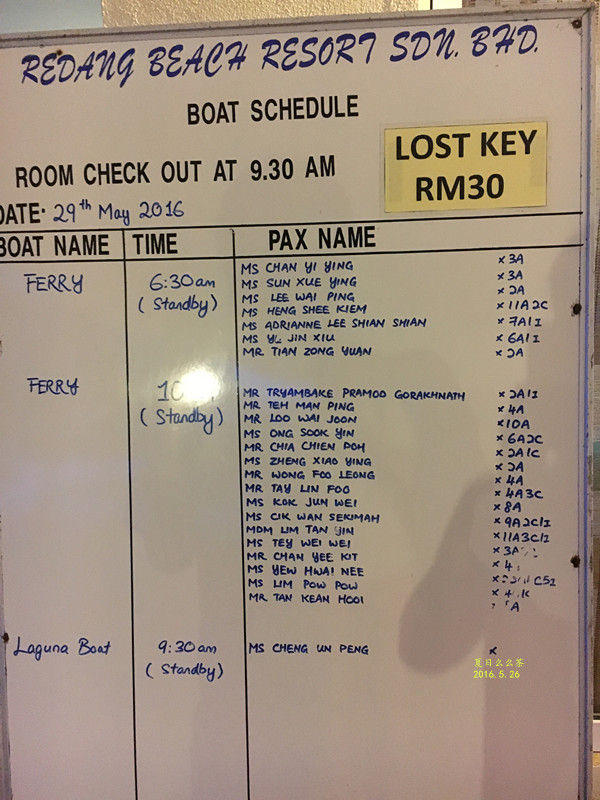 REDANG BEACH RESORT SDN. BHD.
BOAT SCHEDULE
LOST KEY
RM30
ROOM CHECK OUT AT 9.30 AM
DATE: 29th May 2016
BOAT NAME TIME PAX NAME
FERRY 6:30am (Standby)
MS CHAN YI YING x 3A
MS SUN XUE YING x 3A
MS LEE WAI PING x 2A
MS HENG SHEE KIEM x 11A2C
MS ADRIANNE LEE SHIAN SHIAN x 7A1I
MS YU JIN XIU x 6A1I
MR TIAN ZONG YUAN x 2A
FERRY (Standby)
MR TRYAMBAKE PRAMOD GORAKHNATH x 2A1I
MR TEH MAN PING x 4A
MR LOO WAI JOON x 10A
MS ONG SOOK YIN x 6A2C
MR CHIA CHIEN POH x 2A1C
MS ZHENG XIAO YING x 2A
MR WONG FOO LEONG x 4A
MR TAY LIN FOO x 4A3C
MS KOK JUN WEI x 8A
MS CIK WAN SEKIMAH x 9A2C1I
MDM LIM TAN JIN x 11A3C1I
MS TEY WEI WEI x 3A
MR CHAN YEE KIT x 4
MS YEW HWAI NEE
MS LIM POW POW
MR TAN KEAN HOOI
Laguna Boat 9:30am (Standby)
MS CHENG UN PENG x
夏日么么茶
2016.5.26